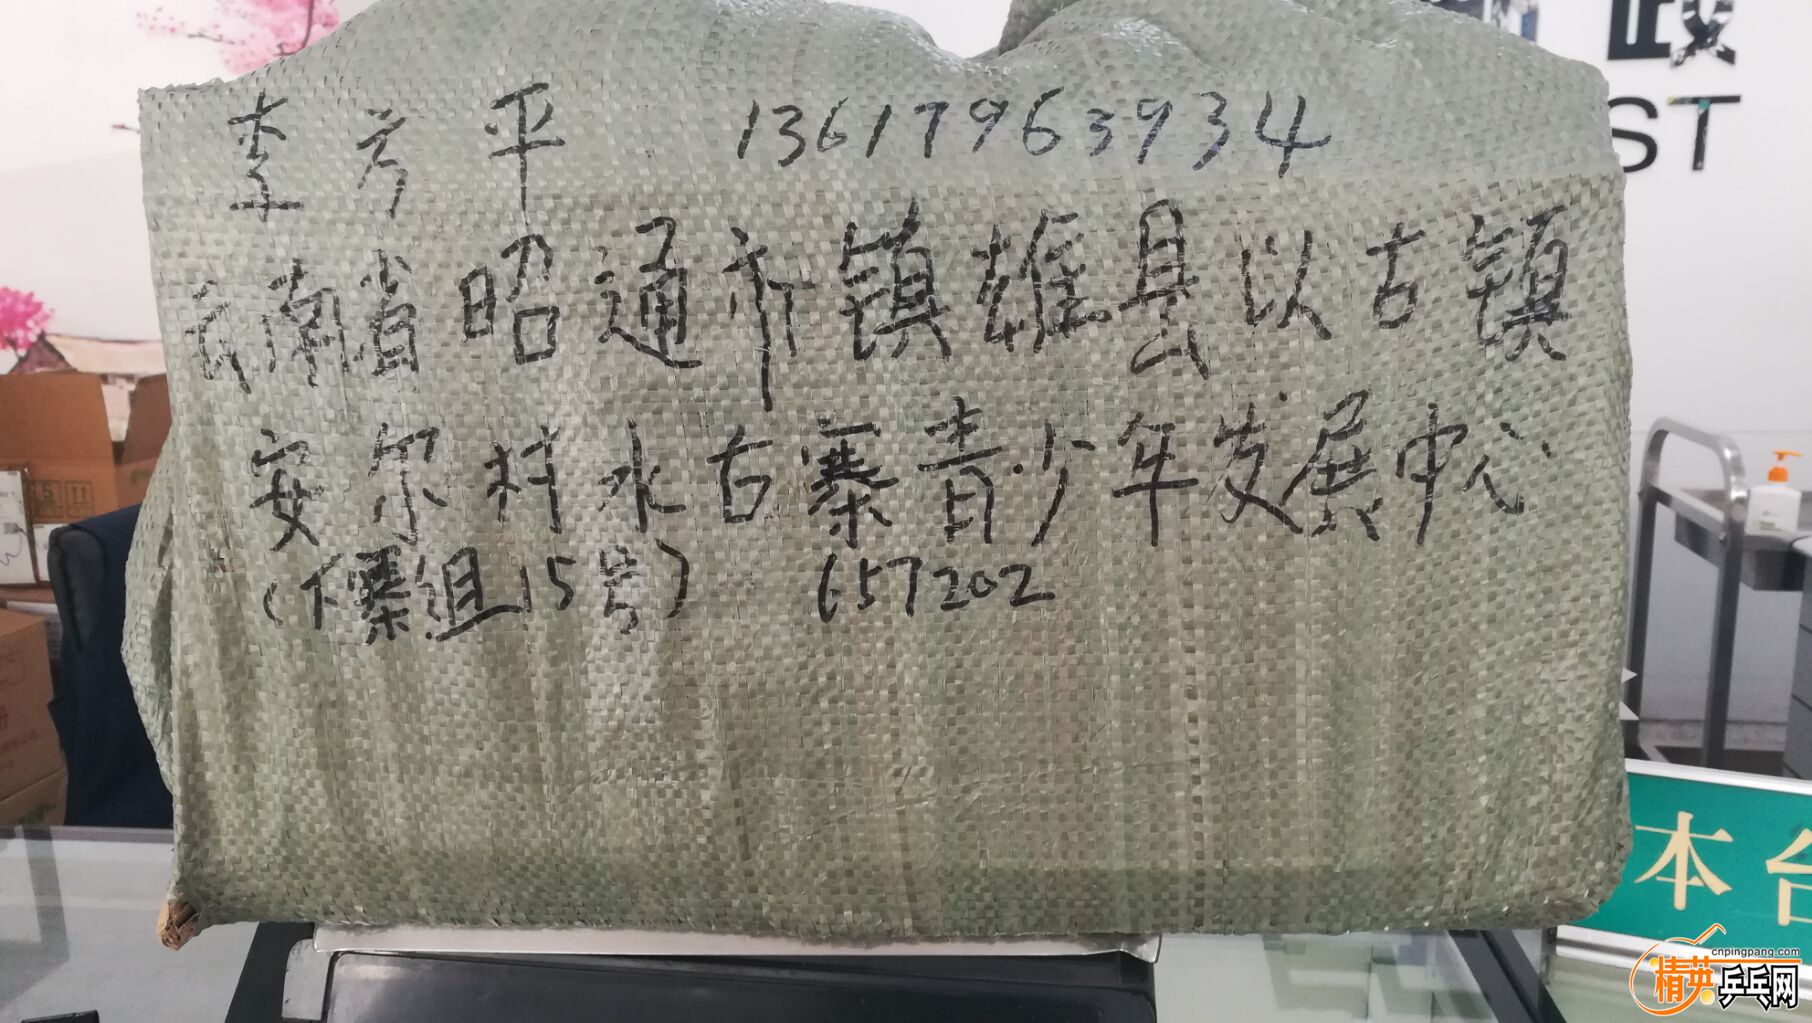 政
ST
李芳平 13617963934
云南省昭通市镇雄县以古镇
安尔村水古寨青少年发展中心
(下寨组15号) 657202
本台
cnpingpang.com
精英乒乓网